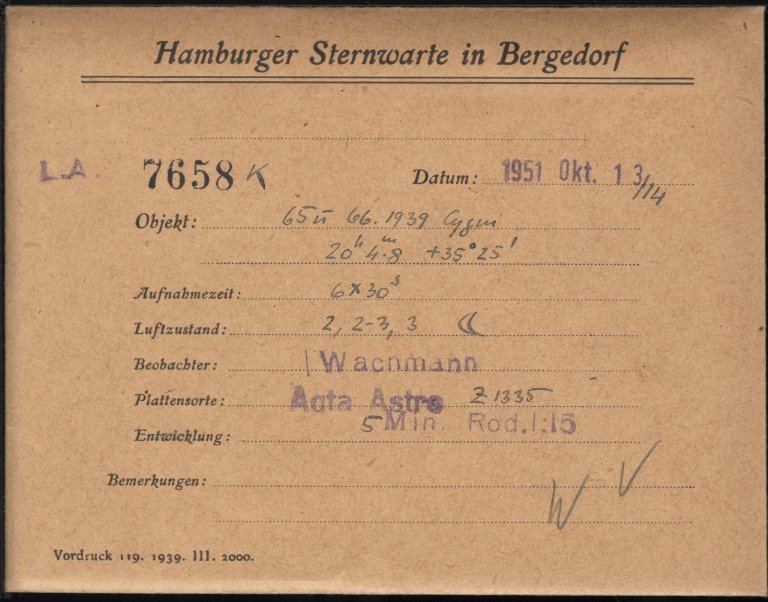 Hamburger Sternwarte in Bergedorf
L.A. 7658 K Datum: 1951 Okt. 13/14
Objekt: 65 u 66.1939 Cygni
20h 4m.8 +35° 25'
Aufnahmezeit: 6×30s
Luftzustand: 2, 2-3, 3
Beobachter: Wachmann
Plattensorte: Agfa Astro Z1335
Entwicklung: 5 Min. Rod.1:15
Bemerkungen:
W V
Vordruck 119. 1939. III. 2000.